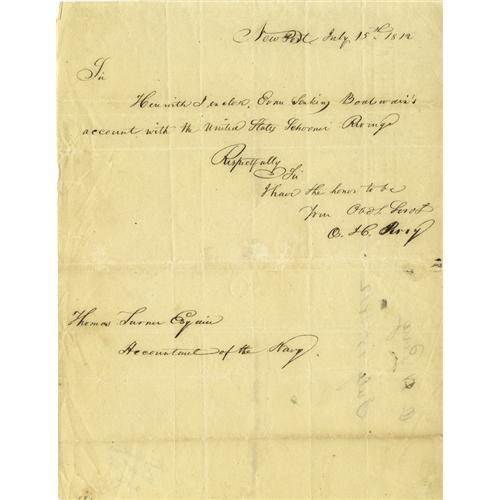 New Port, July 15th 1812
Sir
Herewith I enclose, Evan Jenkins Boatswain's
account with the United States Schooner Revenge
Respectfully
Sir
I have the honor to be
Your Obdt. Servt
O. H. Perry
Thomas Turner Esquire
Accountant of the Navy.